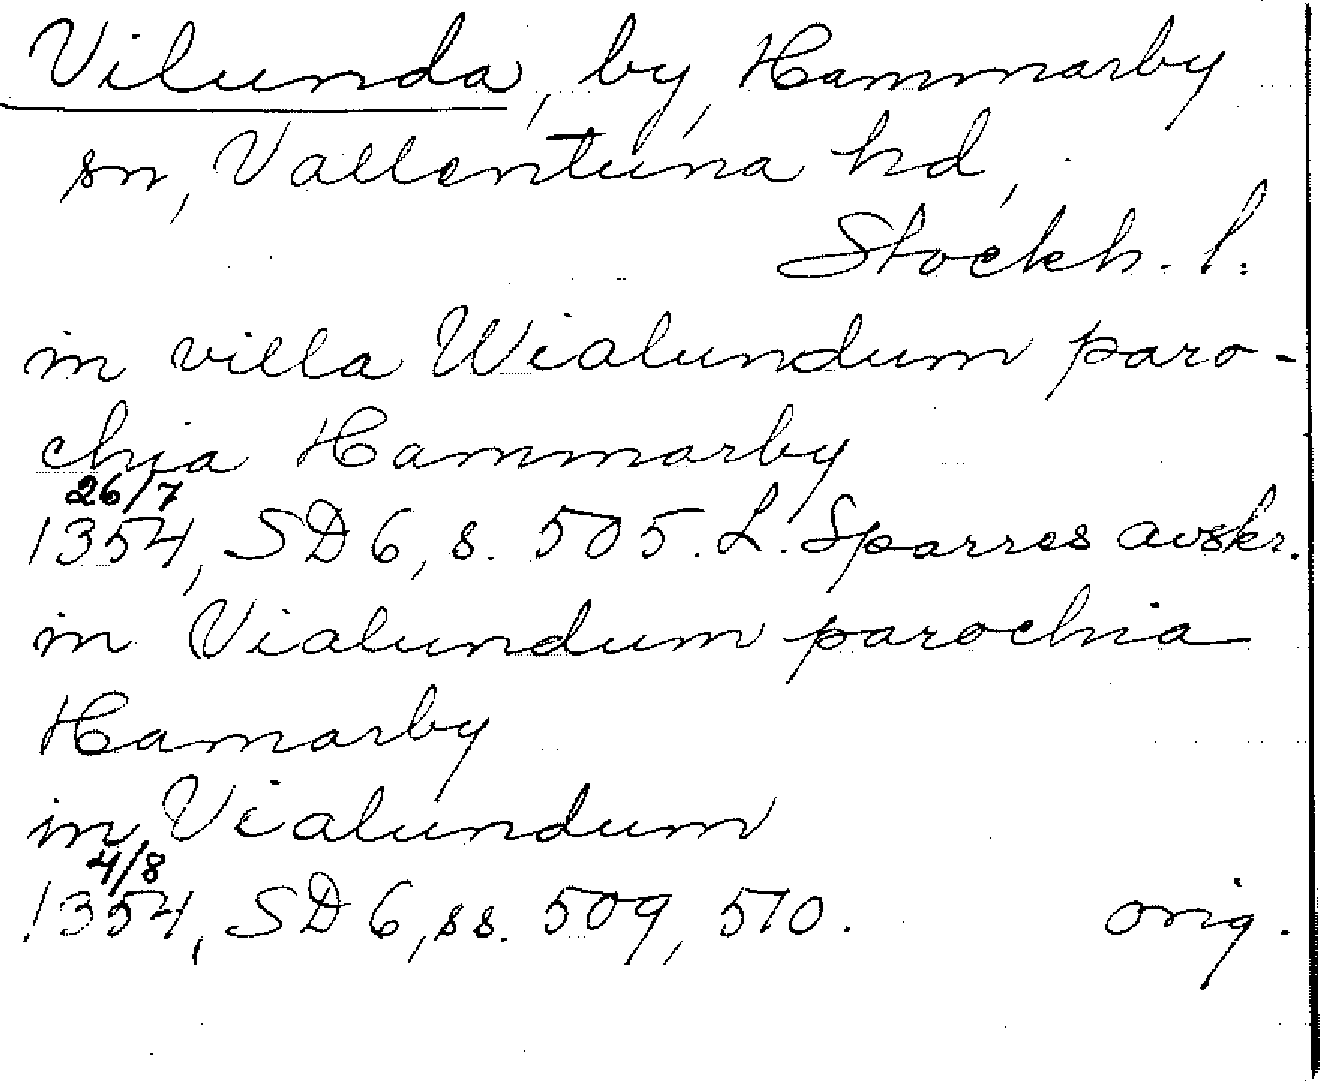 Vilunda, by, Hammarby
sn, Vallentuna hd,
Stockh. l.
in villa Wialundum paro-
chia Hammarby
26/7
1354, SD 6, s. 505. L. Sparres avskr.
in Vialundum parochia
Hamarby
in Vialundum
4/8
1354, SD 6, ss. 509, 510. orig.